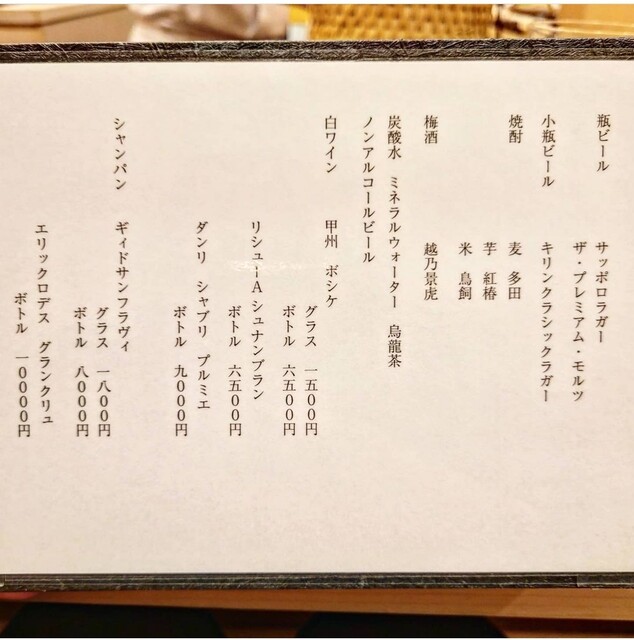 瓶ビール　サッポロラガー
ザ・プレミアム・モルツ
小瓶ビール　キリンクラシックラガー
焼酎　麦　多田
芋　紅椿
米　鳥飼
梅酒　越乃景虎
炭酸水　ミネラルウォーター　烏龍茶
ノンアルコールビール
白ワイン　甲州　ボシケ
グラス　一五〇〇円
ボトル　六五〇〇円
リシューA シュナンブラン
ボトル　六五〇〇円
ダンリ　シャブリ　プルミエ
ボトル　九〇〇〇円
シャンパン　ギィドサンフラヴィ
グラス　一八〇〇円
ボトル　八〇〇〇円
エリックロデス　グランクリュ
ボトル　一〇〇〇〇円